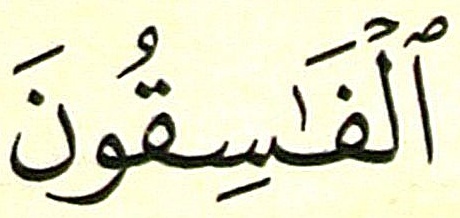 ٱلۡفَـٰسِقُونَ